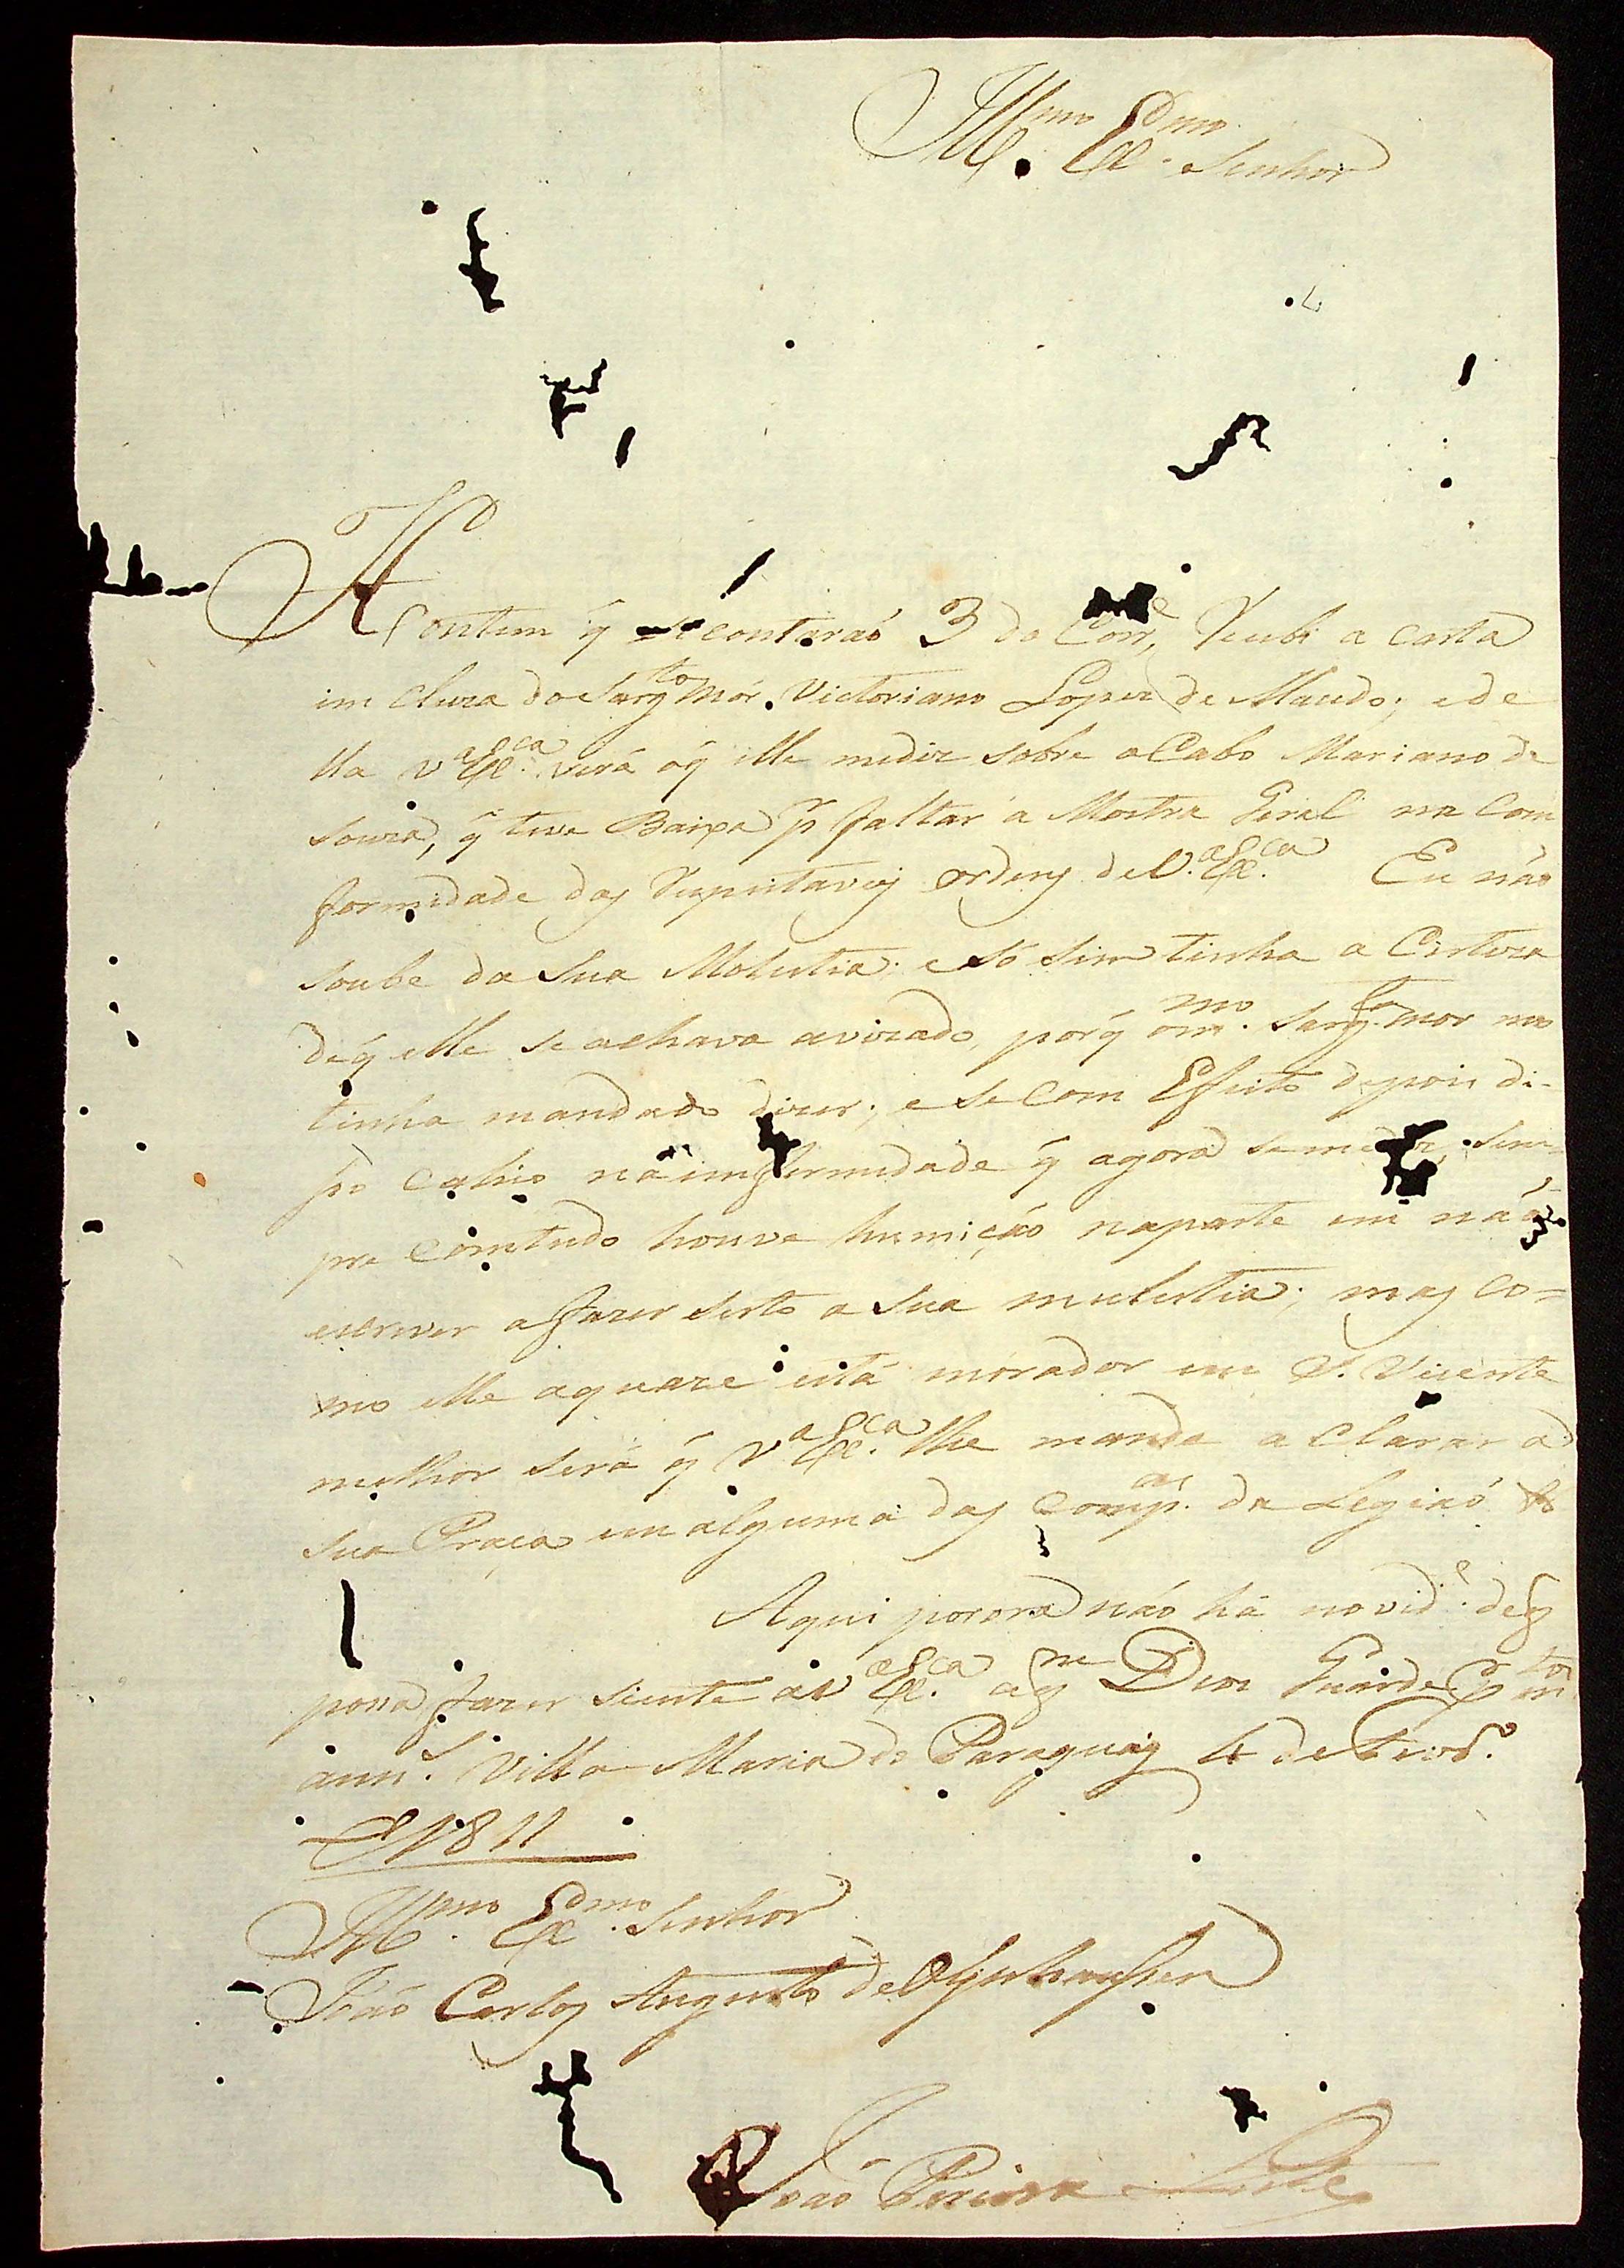 Ill.mo Ex.mo Senhor
Hontem q̃ se contaraó 3 do Corr.e Recebi a carta
im cluza do Sarg.to Mór Victoriano Lopez de Macedo; e de
lla V.a Ex.ca verá oq̃ elle mediz sobre o Cabo Mariano de
Souza, q̃ teve Baixa p.r faltar a Mostra Geral na Com
formidade das Respeitaveis ordens de V.a Ex.ca Eu náo
soube da Sua Molestia; e só sim tinha a Certeza
deq̃ elle se achava avizado, porq̃ om.mo Sarg.to mor me
tinha mandado dizer; e se com Effeito depois di-
ço cahio na imfermidade q̃ agora semediz, sem
pre comtudo houve humição naparte em náo
escrever afazer serto a sua mulestia; mas co=
mo elle aquaze está morador em S. Vicente
melhor será q̃ V.a Ex.ca lhe mande a clarar a
sua Praça em alguma das Comp.as da Legiaó
Aqui porora náo há novid.e deq̃
possa fazer siente aV.a Ex.ca aq.m Deos Guarde p.r m.tos
ann.s Villa Maria do Paraguay 4 de Fevr.o
de 1811
Ill.mo Ex.mo Senhor
Joáo Carlos Augusto de Oeynhaussen
Joaó Pereira Leite